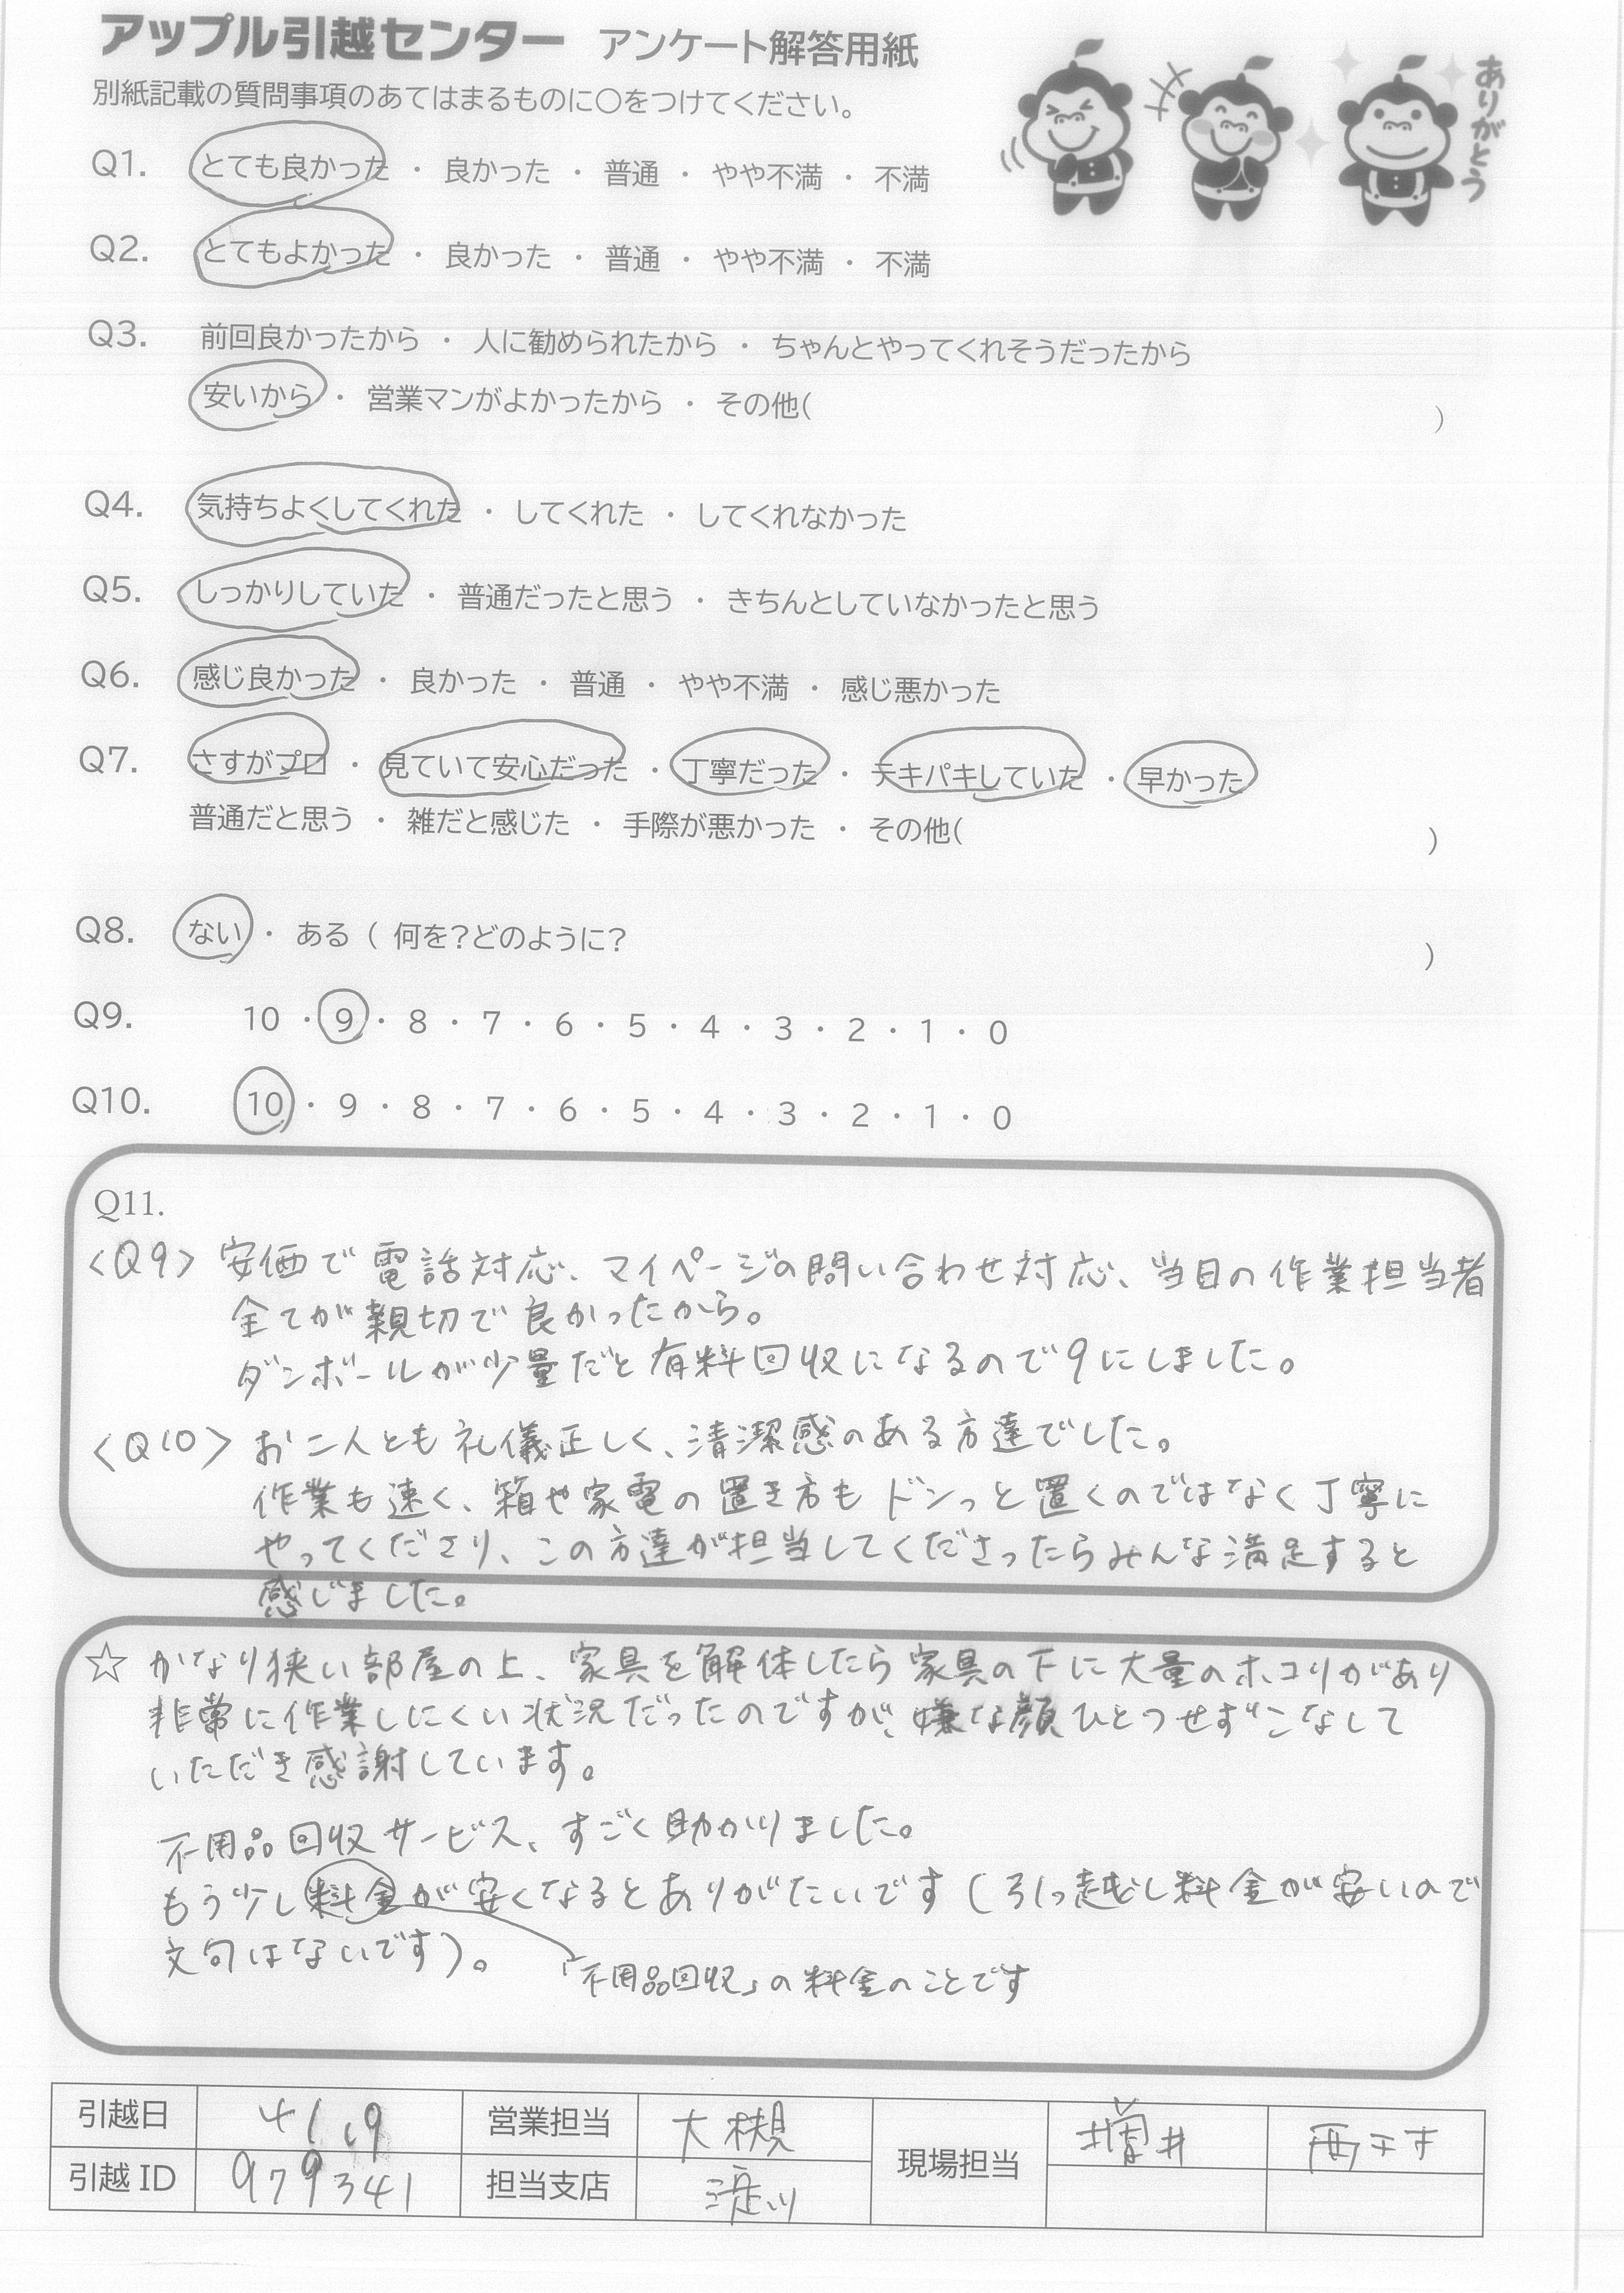 アップル引越センター アンケート解答用紙
別紙記載の質問事項のあてはまるものに○をつけてください。
ありがとう
Q1. とても良かった ・ 良かった ・ 普通 ・ やや不満 ・ 不満
Q2. とてもよかった ・ 良かった ・ 普通 ・ やや不満 ・ 不満
Q3. 前回良かったから ・ 人に勧められたから ・ ちゃんとやってくれそうだったから
安いから ・ 営業マンがよかったから ・ その他( )
Q4. 気持ちよくしてくれた ・ してくれた ・ してくれなかった
Q5. しっかりしていた ・ 普通だったと思う ・ きちんとしていなかったと思う
Q6. 感じ良かった ・ 良かった ・ 普通 ・ やや不満 ・ 感じ悪かった
Q7. さすがプロ ・ 見ていて安心だった ・ 丁寧だった ・ テキパキしていた ・ 早かった
普通だと思う ・ 雑だと感じた ・ 手際が悪かった ・ その他( )
Q8. ない ・ ある ( 何を?どのように? )
Q9. 10 ・ 9 ・ 8 ・ 7 ・ 6 ・ 5 ・ 4 ・ 3 ・ 2 ・ 1 ・ 0
Q10. 10 ・ 9 ・ 8 ・ 7 ・ 6 ・ 5 ・ 4 ・ 3 ・ 2 ・ 1 ・ 0
Q11.
〈Q9〉 安価で電話対応、マイページの問い合わせ対応、当日の作業担当者
全てが親切で良かったから。
ダンボールが少量だと有料回収になるので9にしました。
〈Q10〉 お二人とも礼儀正しく、清潔感のある方達でした。
作業も速く、箱や家電の置き方もドンっと置くのではなく丁寧に
やってくださり、この方達が担当してくださったらみんな満足すると
感じました。
☆ かなり狭い部屋の上、家具を解体したら家具の下に大量のホコリがあり
非常に作業しにくい状況だったのですが、嫌な顔ひとつせずこなして
いただき感謝しています。
不用品回収サービス、すごく助かりました。
もう少し料金が安くなるとありがたいです (引っ越し料金が安いので
文句はないです)。
「不用品回収」の料金のことです
引越日 4/19 営業担当 大槻 現場担当 増井
引越 ID 979341 担当支店 淀川